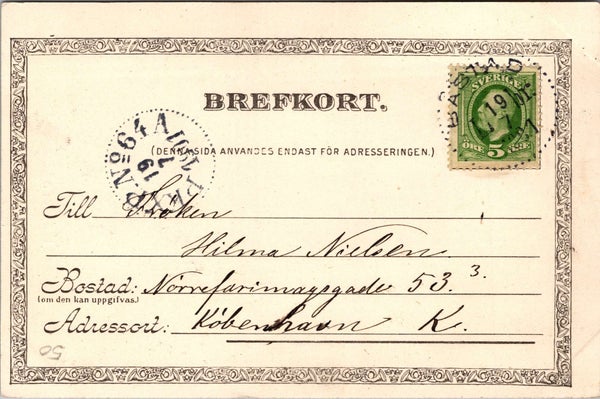 BREFKORT.
(DENNA SIDA ANVANDES ENDAST FÖR ADRESSERINGEN.)
SVERIGE
ÖRE 5 ÖRE
BÅSTAD
19
1
PKXP. No 64 A
19
Till Fröken
Hilma Nielsen.
Bostad: Nörrefarimagsgade 53.3.
(om den kan uppgifvas.)
Adressort: Köbenhavn K.
50